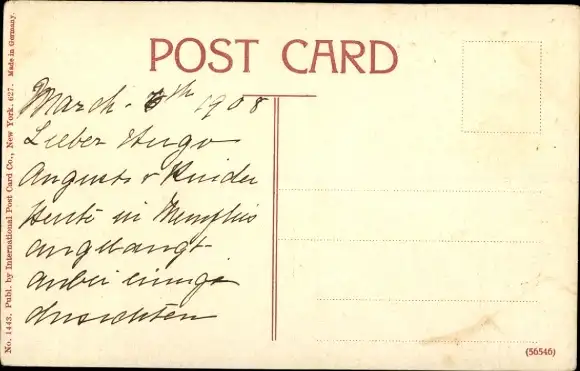 POST CARD
March. 6th 1908
Lieber Hugo
Auguste & Kinder
Heute in Memphis
angelangt
anbei einige
Ansichten
No. 1443. Publ. by International Post Card Co., New York. 627. Made in Germany.
(56546)